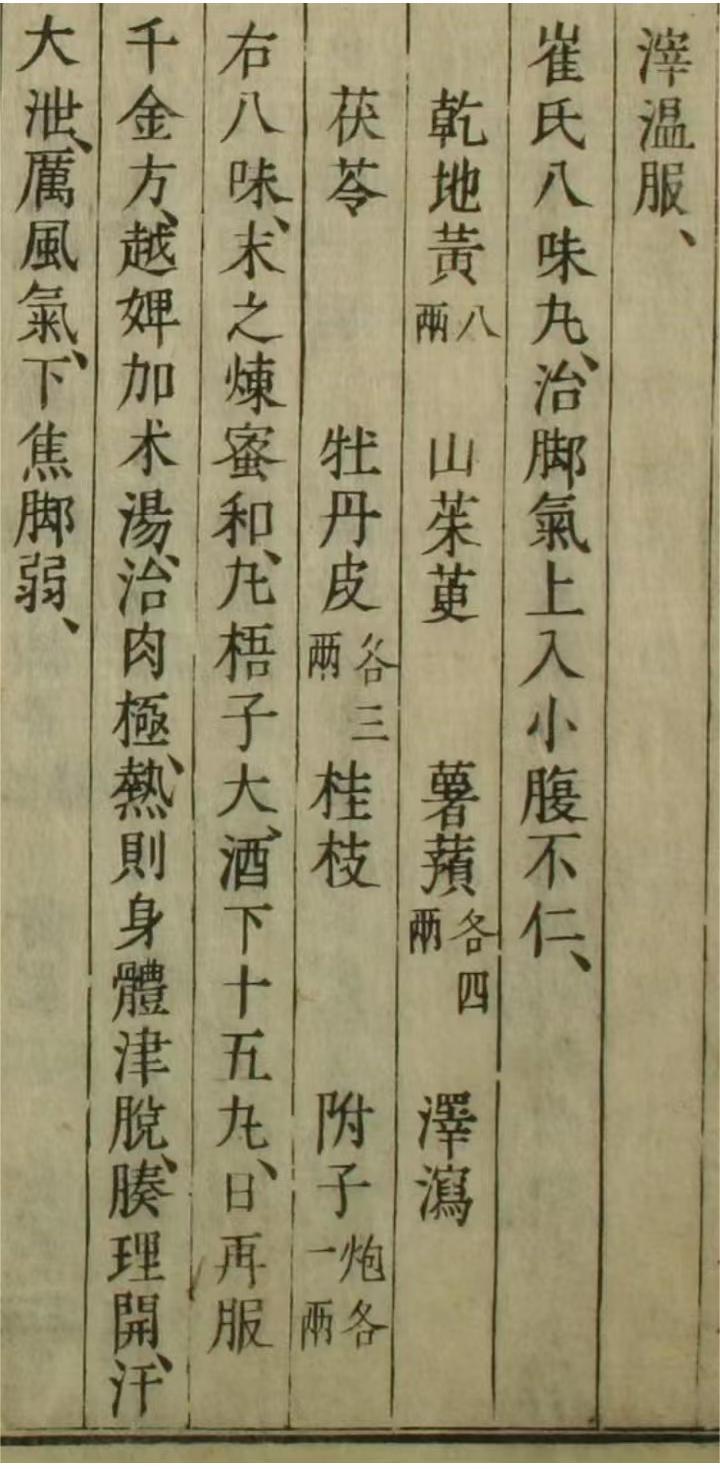 滓温服、
崔氏八味丸、治脚氣上入小腹不仁、
乾地黃八兩 山茱萸 薯蕷各四兩 澤瀉
茯苓 牡丹皮各三兩 桂枝 附子炮各一兩
右八味、末之煉蜜和、丸梧子大、酒下十五丸、日再服
千金方、越婢加术湯、治肉極、熱則身體津脫、腠理開、汗
大泄、厲風氣、下焦脚弱、